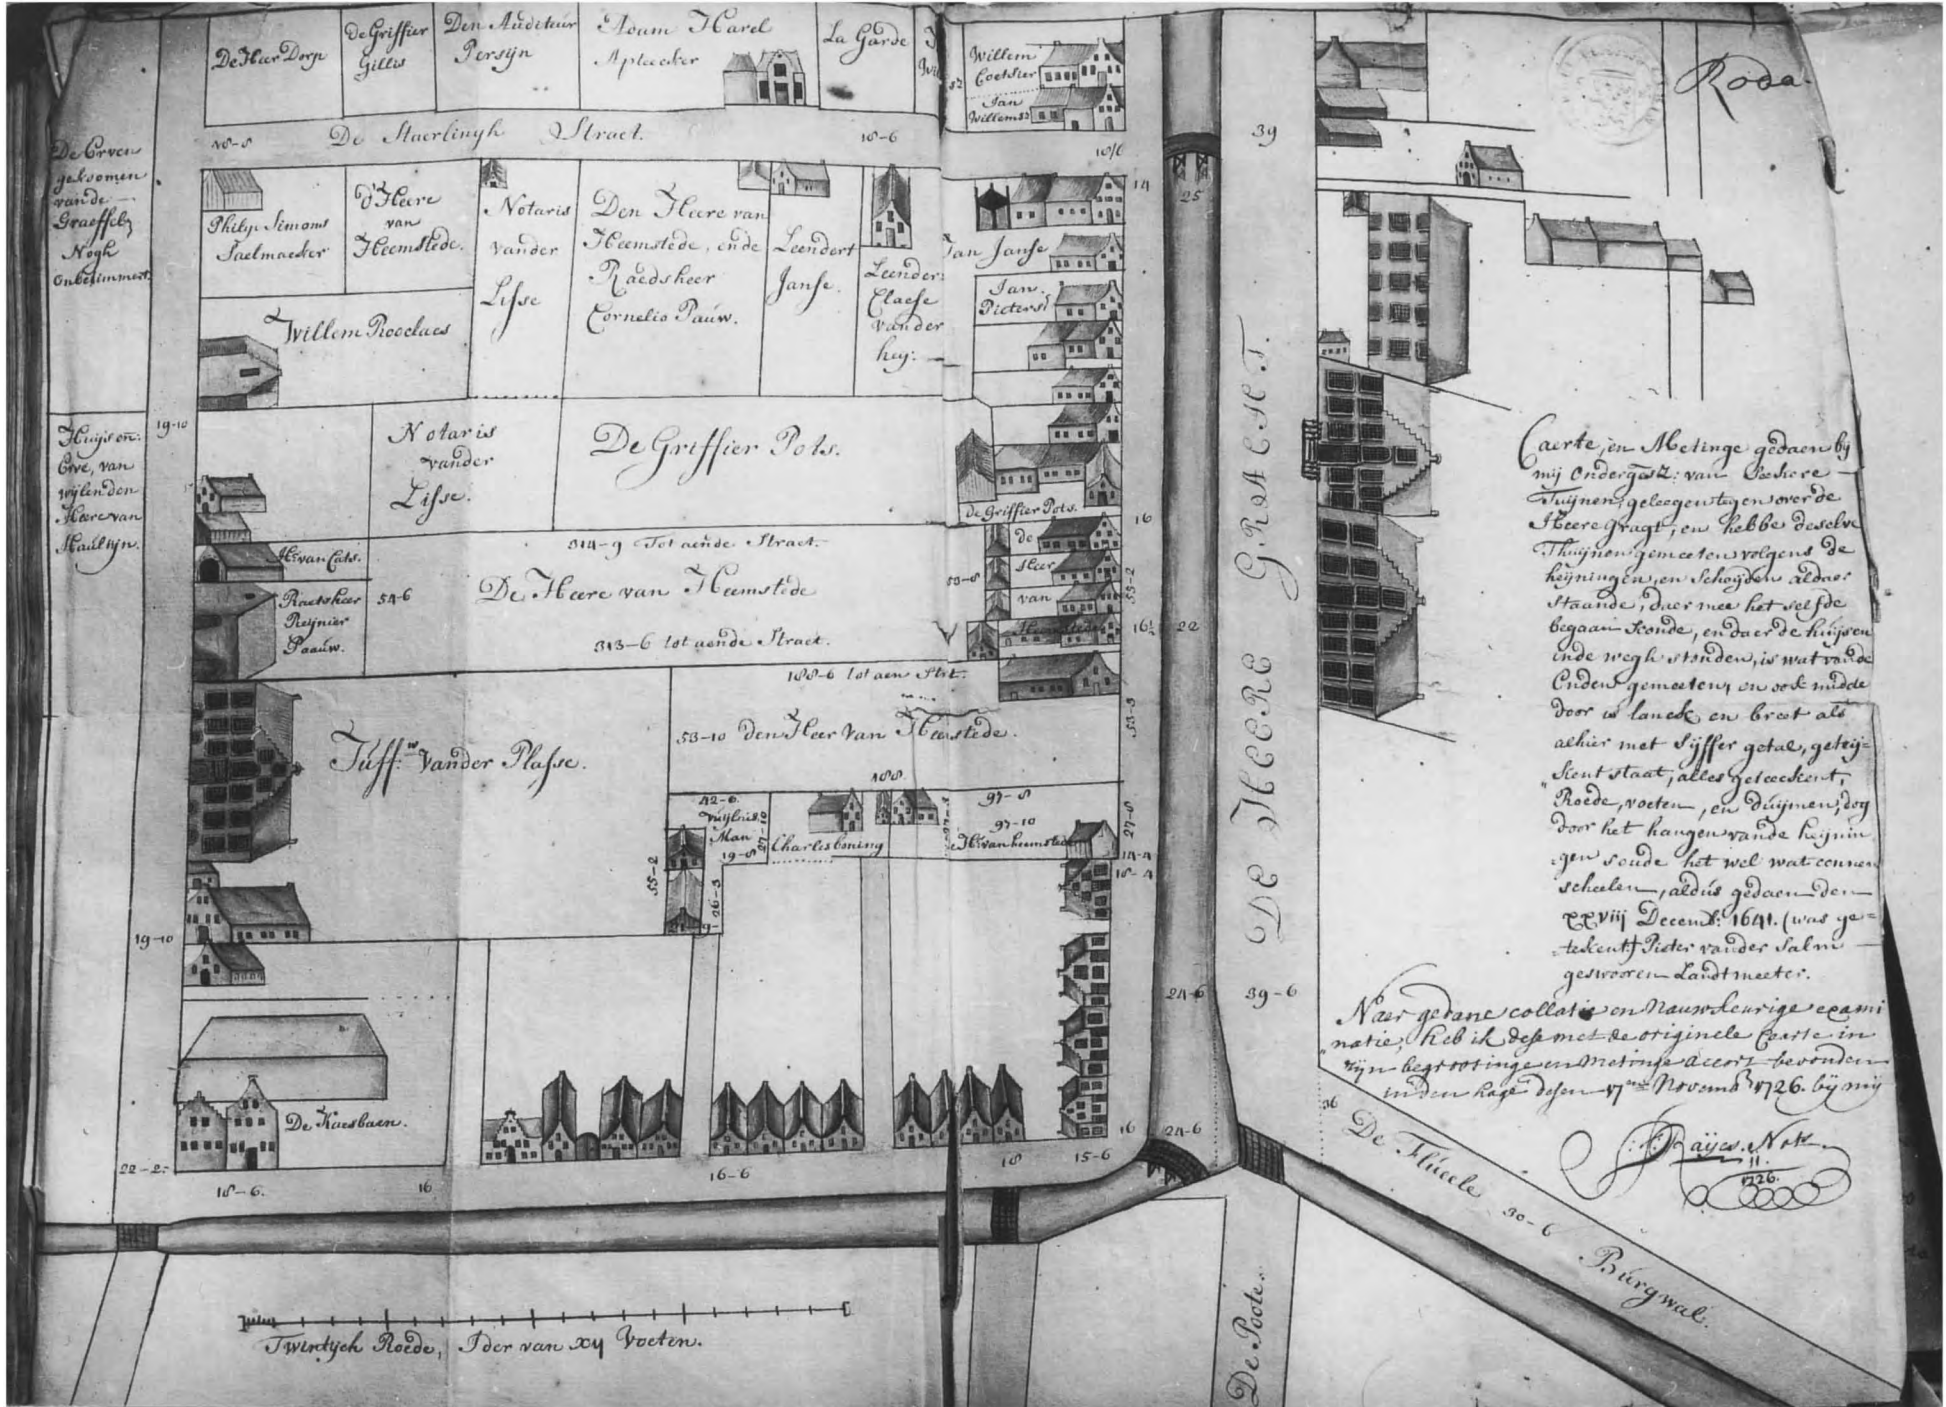 De Heer Dorp
De Griffier
Gillis
Den Auditeur
Persijn
Adam Harel
Apteecker
La Garde
52
Willem
Coetsier
Jan
Willemss
Roda.
18-8
De Staerlingh Straet.
18-6
18/6
39
De Erven
gekoomen
van de
Graeffel
Nogh
onbetimmert
Philip Simons
Saelmaecker
d'Heere
van
Heemstede.
Notaris
vander
Lisse
Den Heere van
Heemstede, ende
Raedsheer
Cornelis Pauw.
Leendert
Janse.
Leender
Claese
vander
hey:
14
25
Jan Janse
Jan
Pieters
Willem Roeclaes
19-10
Huijs en:
Erve, van
wijlen den
Heere van
Maulsijn.
Notaris
vander
Lisse.
De Griffier Pots.
de Griffier Pots.
16
314-9 Tot aende Straet.
Hr. van Cats.
Raetsheer
Reijnier
Paauw.
54-6
De Heere van Heemstede
313-6 tot aende Straet.
53-8
de
Heer
van
Heemstede
53-2
16½
22
188-6 tot aen Strt.
53-10 den Heer van Heemstede.
53-3
Juffw. Vander Plasse.
188
42-6
Vuijlnis
Man
19-8
27-10
Charles boning
97-8
97-10
de Hr. van heemstede
27-8
14-4
18-4
55-2
26-3
19-10
DE HEERE GRACHT.
24-6
39-6
De Kaesbaen.
22-2
18-6.
16
16-6
18
15-6
16
24-6
36
De Flueele
30-6
Burgwal.
De Poote.
Twintigh Roede, Ider van xij Voeten.
Caerte, en Metinge gedaen bij
mij ondergesz: van Seekere
Tuijnen, geleegen tegen over de
Heere gragt, en hebbe deselve
Thuijnen gemeeten volgens de
heijningen, en Schoijden aldaer
staande, daer mee het selfde
begaan konde, en daer de huijsen
inde wegh stonden, is wat vande
Enden gemeeten, en ook midde
door is lanck en breet als
alhier met Sijffer getal, geteij-
kent staat, alles gereeckent,
Roede, voeten, en duijmen, dog
door het hangen vande heijnin
gen soude het wel wat connen
scheelen, aldus gedaen den
xxviij Decemb: 1641. (was ge-
tekent) Pieter vander Salm
geswooren Landtmeeter.
Naer gedane collatie en nauwkeurige exami
natie, heb ik dese met de origineele Caarte in
zijn begrootinge en metinge accort bevonden
in den hage desen 17en Novemb. 1726. bij mij
Not.
11.
1726.